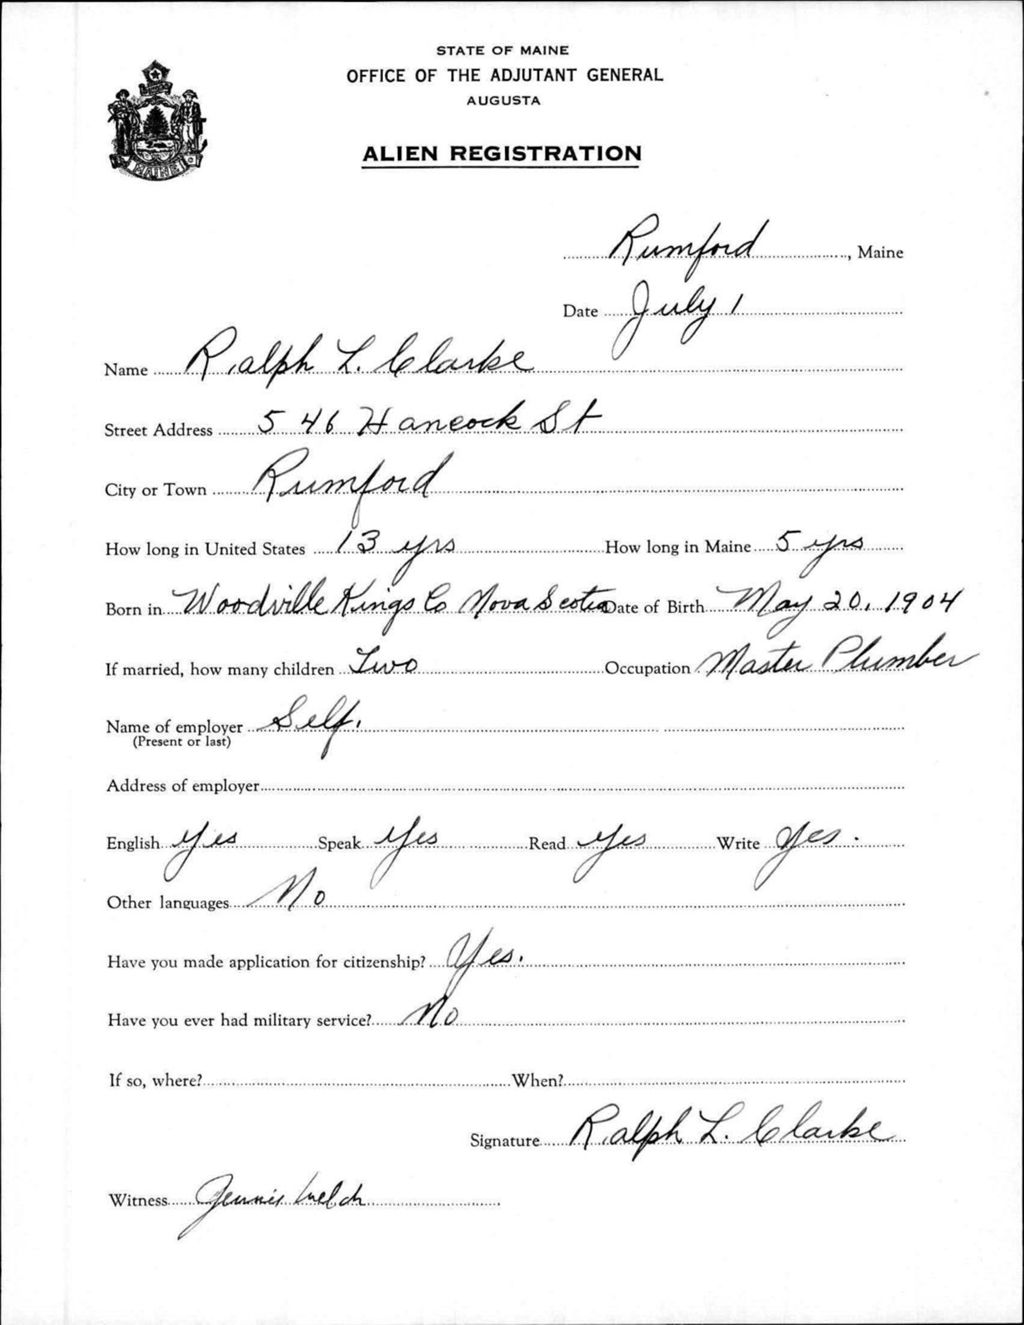 STATE OF MAINE
OFFICE OF THE ADJUTANT GENERAL
AUGUSTA
ALIEN REGISTRATION
MAINE
Rumford, Maine
Date July 1
Name Ralph L. Clarke
Street Address 546 Hancock St
City or Town Rumford
How long in United States 13 yrs How long in Maine 5 yrs
Born in Woodville Kings Co Nova Scotia Date of Birth May 20, 1904
If married, how many children Two Occupation Master Plumber
Name of employer Self.
(Present or last)
Address of employer
English Yes Speak Yes Read Yes Write Yes.
Other languages No
Have you made application for citizenship? Yes.
Have you ever had military service? No
If so, where? When?
Signature Ralph L. Clarke
Witness Welch